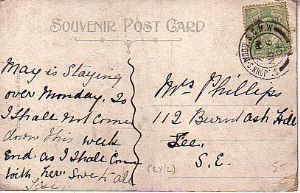 SOUVENIR POST CARD
May is Staying
over Monday. So
I shall not come
down this week
end as I shall come
with her. Sweet all
Mrs Phillips
112 Burnt Ash Hill
Lee.
S.E.